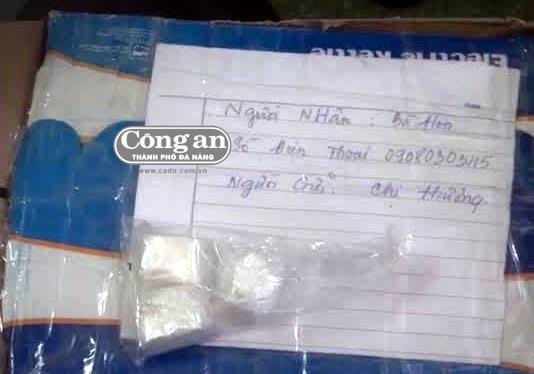 Electric Kettle
Người NHận : Bà Hoa
Số Điện Thoại 0908030345
Người Gửi : Chị Hường
Công an
THÀNH PHỐ ĐÀ NẴNG
www.cadn.com.vn